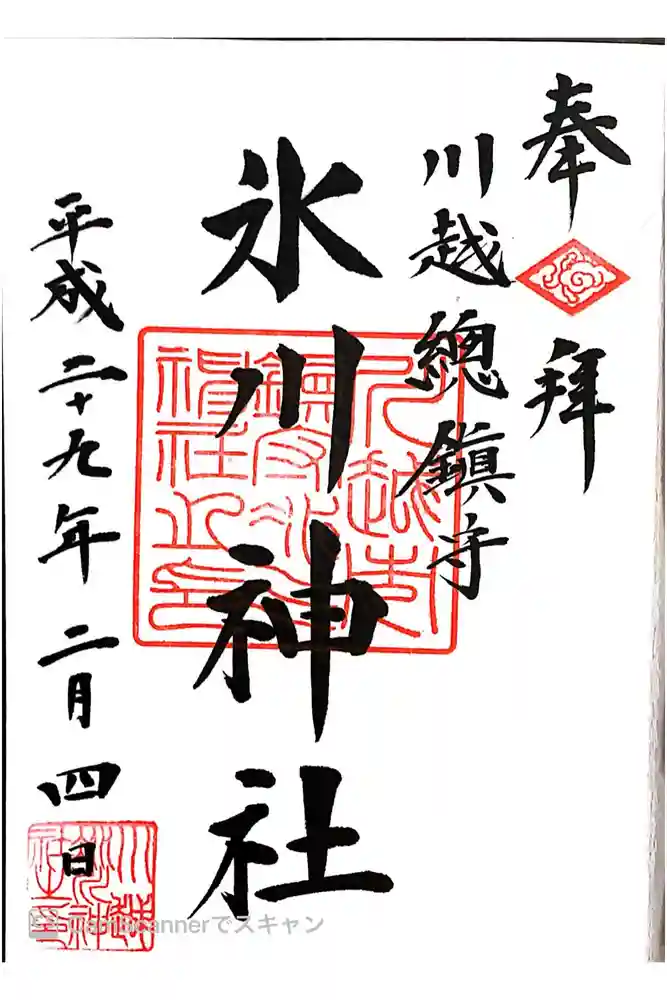 奉拝
川越總鎮守
氷川神社
平成二十九年二月四日
CamScannerでスキャン